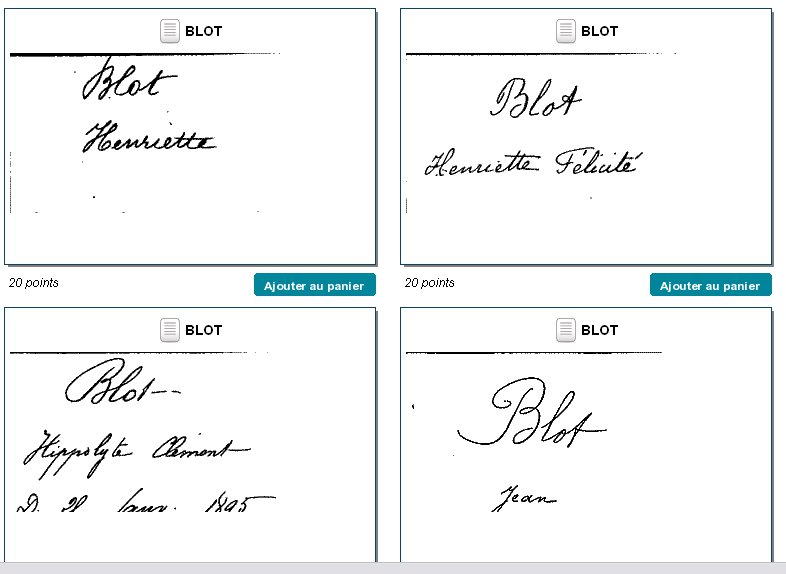 BLOT
Blot
Henriette
20 points
Ajouter au panier
BLOT
Blot
Henriette Félicité
20 points
Ajouter au panier
BLOT
Blot--
Hippolyte Clément
D. 21 Janv. 1895
BLOT
Blot
Jean